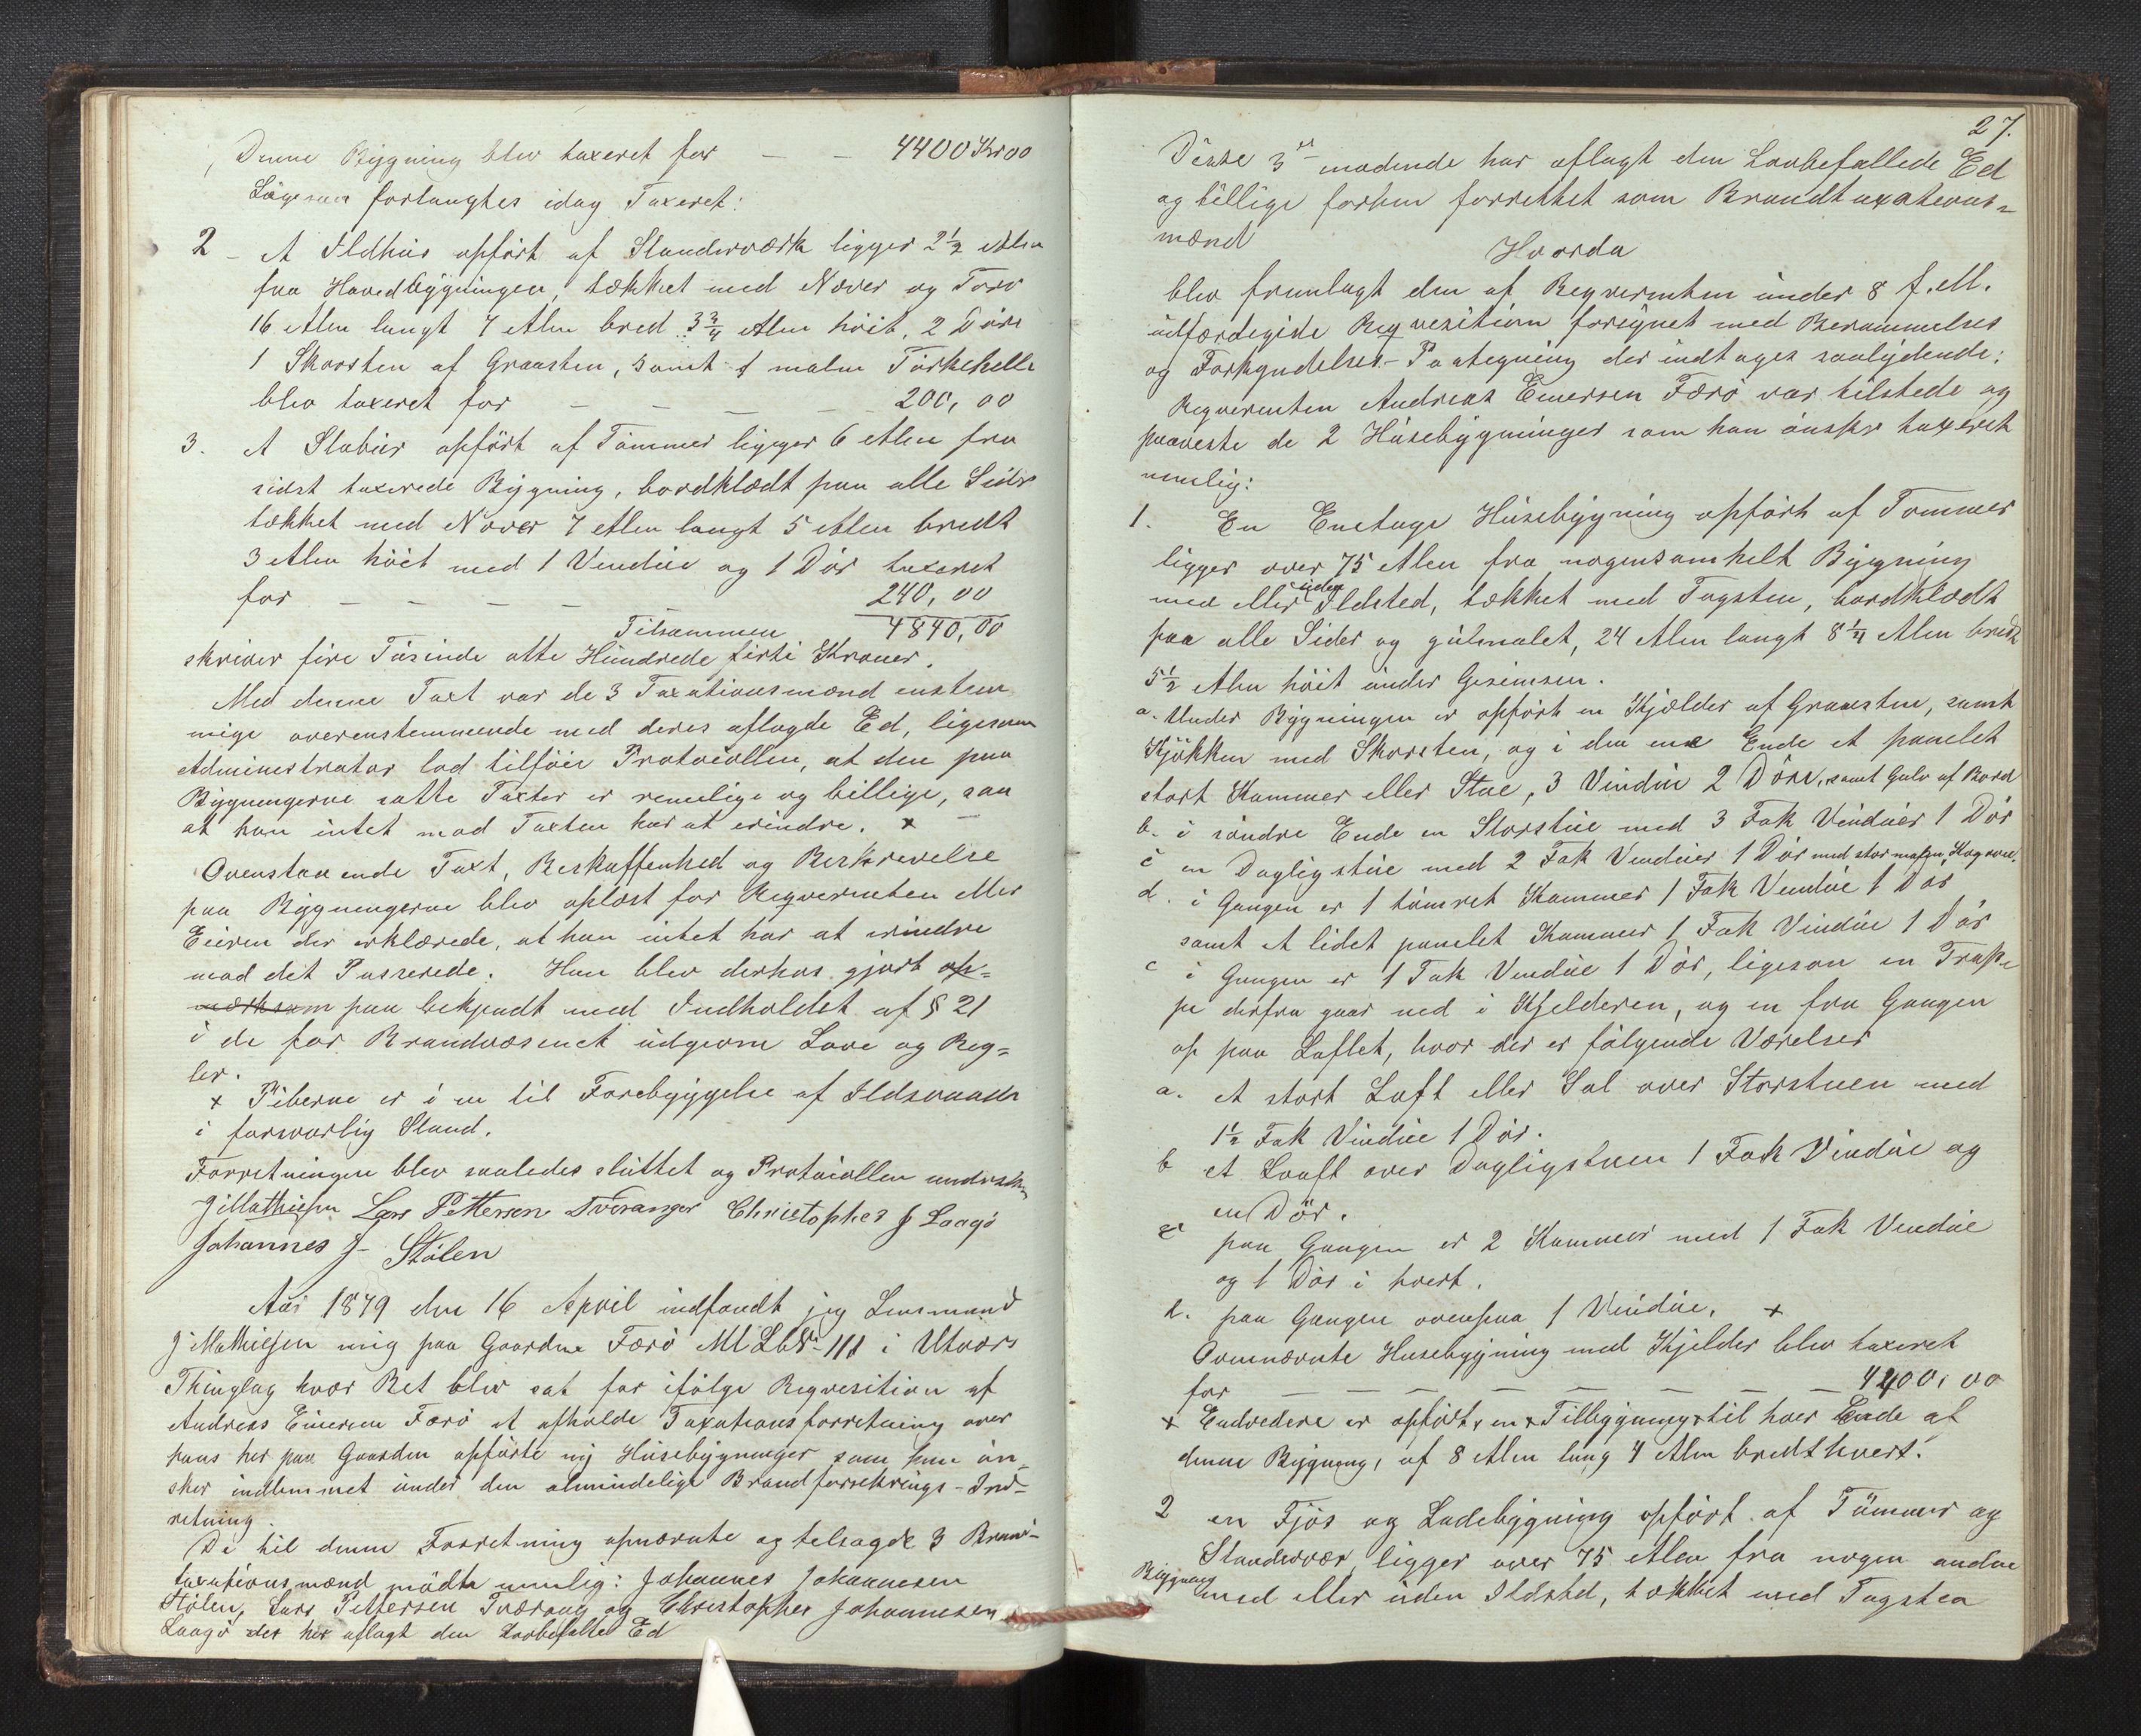 Denne Bygning blev taxeret for — — 4400 Kr 00
Ligesaa forlangtes idag Taxeret:
2 - et Ildhus opfört af Standerværk ligger 2½ Alen
fra Hovedbygningen, tækket med Næver og Torv
16 Alen langt 7 Alen bred 3¾ Alen höit, 2 Döre
1 Skorsten af Graasten, samt 1 malm Törkehelle
blev taxeret for — — — — 200,00
3. et Stabur opfört af Tömmer ligger 6 Alen fra
sidst taxerede Bygning, bordklædt paa alle Sider
tækket med Næver 7 Alen langt 5 Alen bredt
3 Alen höit med 1 Vindue og 1 Dör taxeret
for — — — — 240,00
Tilsammen 4840,00
skriver fire Tusinde otte Hundrede firti Kroner.
Med denne Taxt var de 3 Taxationsmænd enstem
mige overenstemmende med deres aflagde Ed, ligesom
Administrator lod tilföie Protocollen, at den paa
Bygningerne satte Taxter er rimelige og billige, saa
at han intet mod Taxten har at erindre. x —
Ovenstaaende Taxt, Beskaffenhed og Beskrivelse
paa Bygningerne blev oplæst for Reqvirenten eller
Eieren der erklærede, at han intet har at erindre
mod det Passerede. Han blev derhos gjort op=
mærksom paa bekjendt med Indholdet af § 21
i de for Brandvæsenet udgivne Love og Reg=
ler.
x Piberne er i en til Forebyggelse af Ildsvaade
i forsvarlig Stand.
Forretningen blev saaledes sluttet og Protocollen undersk
J Mathiesen Lars Pettersen Tveranger Christopher J Laagö
Johannes J- Stölen
Aar 1879 den 16 April indfandt jeg Lensmand
J Mathiesen mig paa Gaarden Færö Ml Lb № 111 i Utvær
Thinglag hvor Ret blev sat for ifölge Reqvisition af
Andreas Einersen Færö at afholde Taxationsforretning over
hans her paa Gaarden opförte ny Husebygninger som han ön=
sker indlemmet under den almindelige Brandforsikrings-Ind=
retning.
De til denne Forretning opnævnte og tilsagde 3 Brand-
taxationsmænd mödte nemlig: Johannes Johannesen
Stölen, Lars Pettersen Tværang og Christopher Johannesen
Laagö der har aflagt den Lovbefalte Ed
27.
Disse 3de mödende har aflagt den Lovbefallede Ed
og tillige forhen forrettet som Brandtaxations=
mænd
Hvorda
blev fremlagt den af Reqvirenten under 8 f.M.
udfærdigede Reqvesition forsynet med Berammelses
og Forkyndelses-Paategning der indtages saalydende:
Reqvirenten Andreas Einersen Færö var tilstede og
paaviste de 2 Husebygninger som han önsker taxeret
nemlig:
1. En Enetage Husebygning opfört af Tømmer
ligger over 75 Alen fra nogensomhelt Bygning
med eller uden Ildsted, tækket med Tagsten, bordklædt
paa alle Sider og gulmalet, 24 Alen langt 8¼ Alen bredt
5½ Alen höit under Gesimsen.
a. Under Bygningen er opfört en Kjælder af Graasten, samt
Kjökken med Skorsten, og i den ene Ende et panelet
stort Kammer eller Stue, 3 Vindue 2 Döre, samt Gulv af Bord
b. i söndre Ende en Storstue med 3 Fak Vinduer 1 Dör
c en Dagligstue med 2 Fak Vinduer 1 Dör med stor Kogeovn.
d. i Gangen er 1 tömret Kammer 1 Fak Vindue 1 Dör
samt et lidet panelet Kammer 1 Fak Vindue 1 Dör
e i Gangen er 1 Fak Vindue 1 Dör, ligesom en Trap=
pe derfra gaar ned i Kjelderen, og en fra Gangen
op paa Loftet, hvor der er fölgende Værelser
a. et stort Loft eller Sal over Storstuen med
1½ Fak Vindue 1 Dör.
b et Louft over Dagligstuen 1 Fak Vindue og
en Dör.
c paa Gangen er 2 Kammer med 1 Fak Vindue
og 1 Dör i hvert.
d. paa Gangen ovenpaa 1 Vindue. x
Ovennævnte Husebygning med Kjelder blev taxeret
for — — — — — — — 4400,00
x Endvidere er opfört en Tilbygning til hver Ende af
denne Bygning, af 8 Alen lang 4 Alen bredt hvert.
2 en Fjös og Ladebygning opfört af Tömmer og
Standervær, ligger over 75 Alen fra nogen anden
Bygning med eller uden Ildsted, tækket med Tagsten